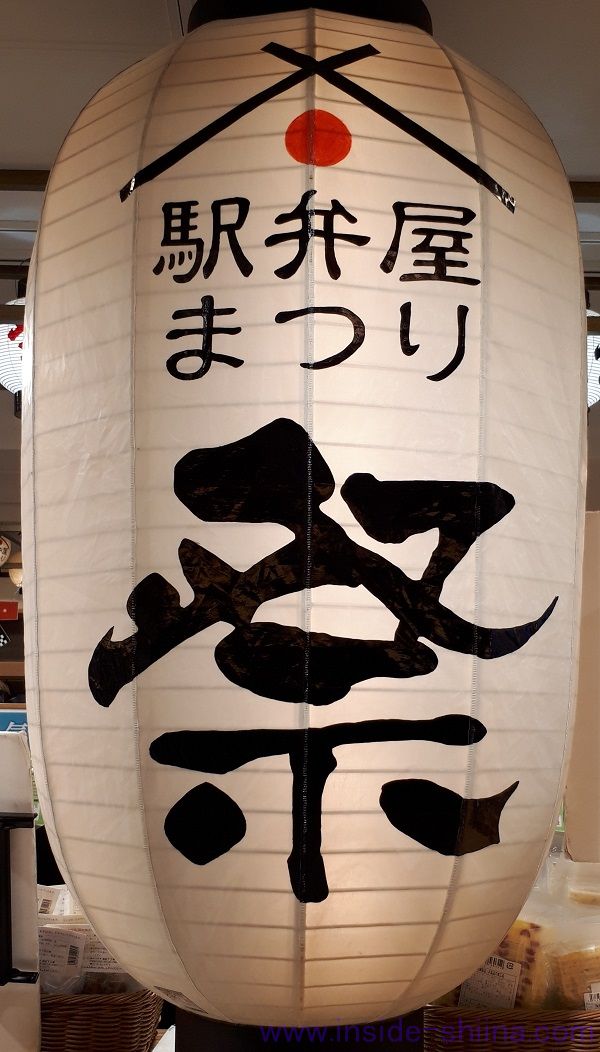 駅弁屋
まつり
祭
www.insider-shiina.com